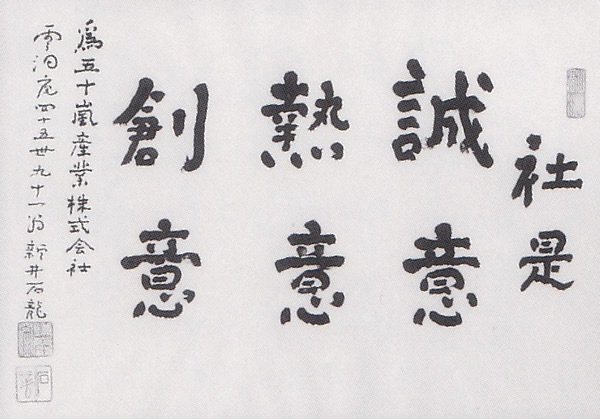 社是
誠意
熱意
創意
為五十嵐産業株式会社
雪洞庵四十五世九十一翁新井石龍